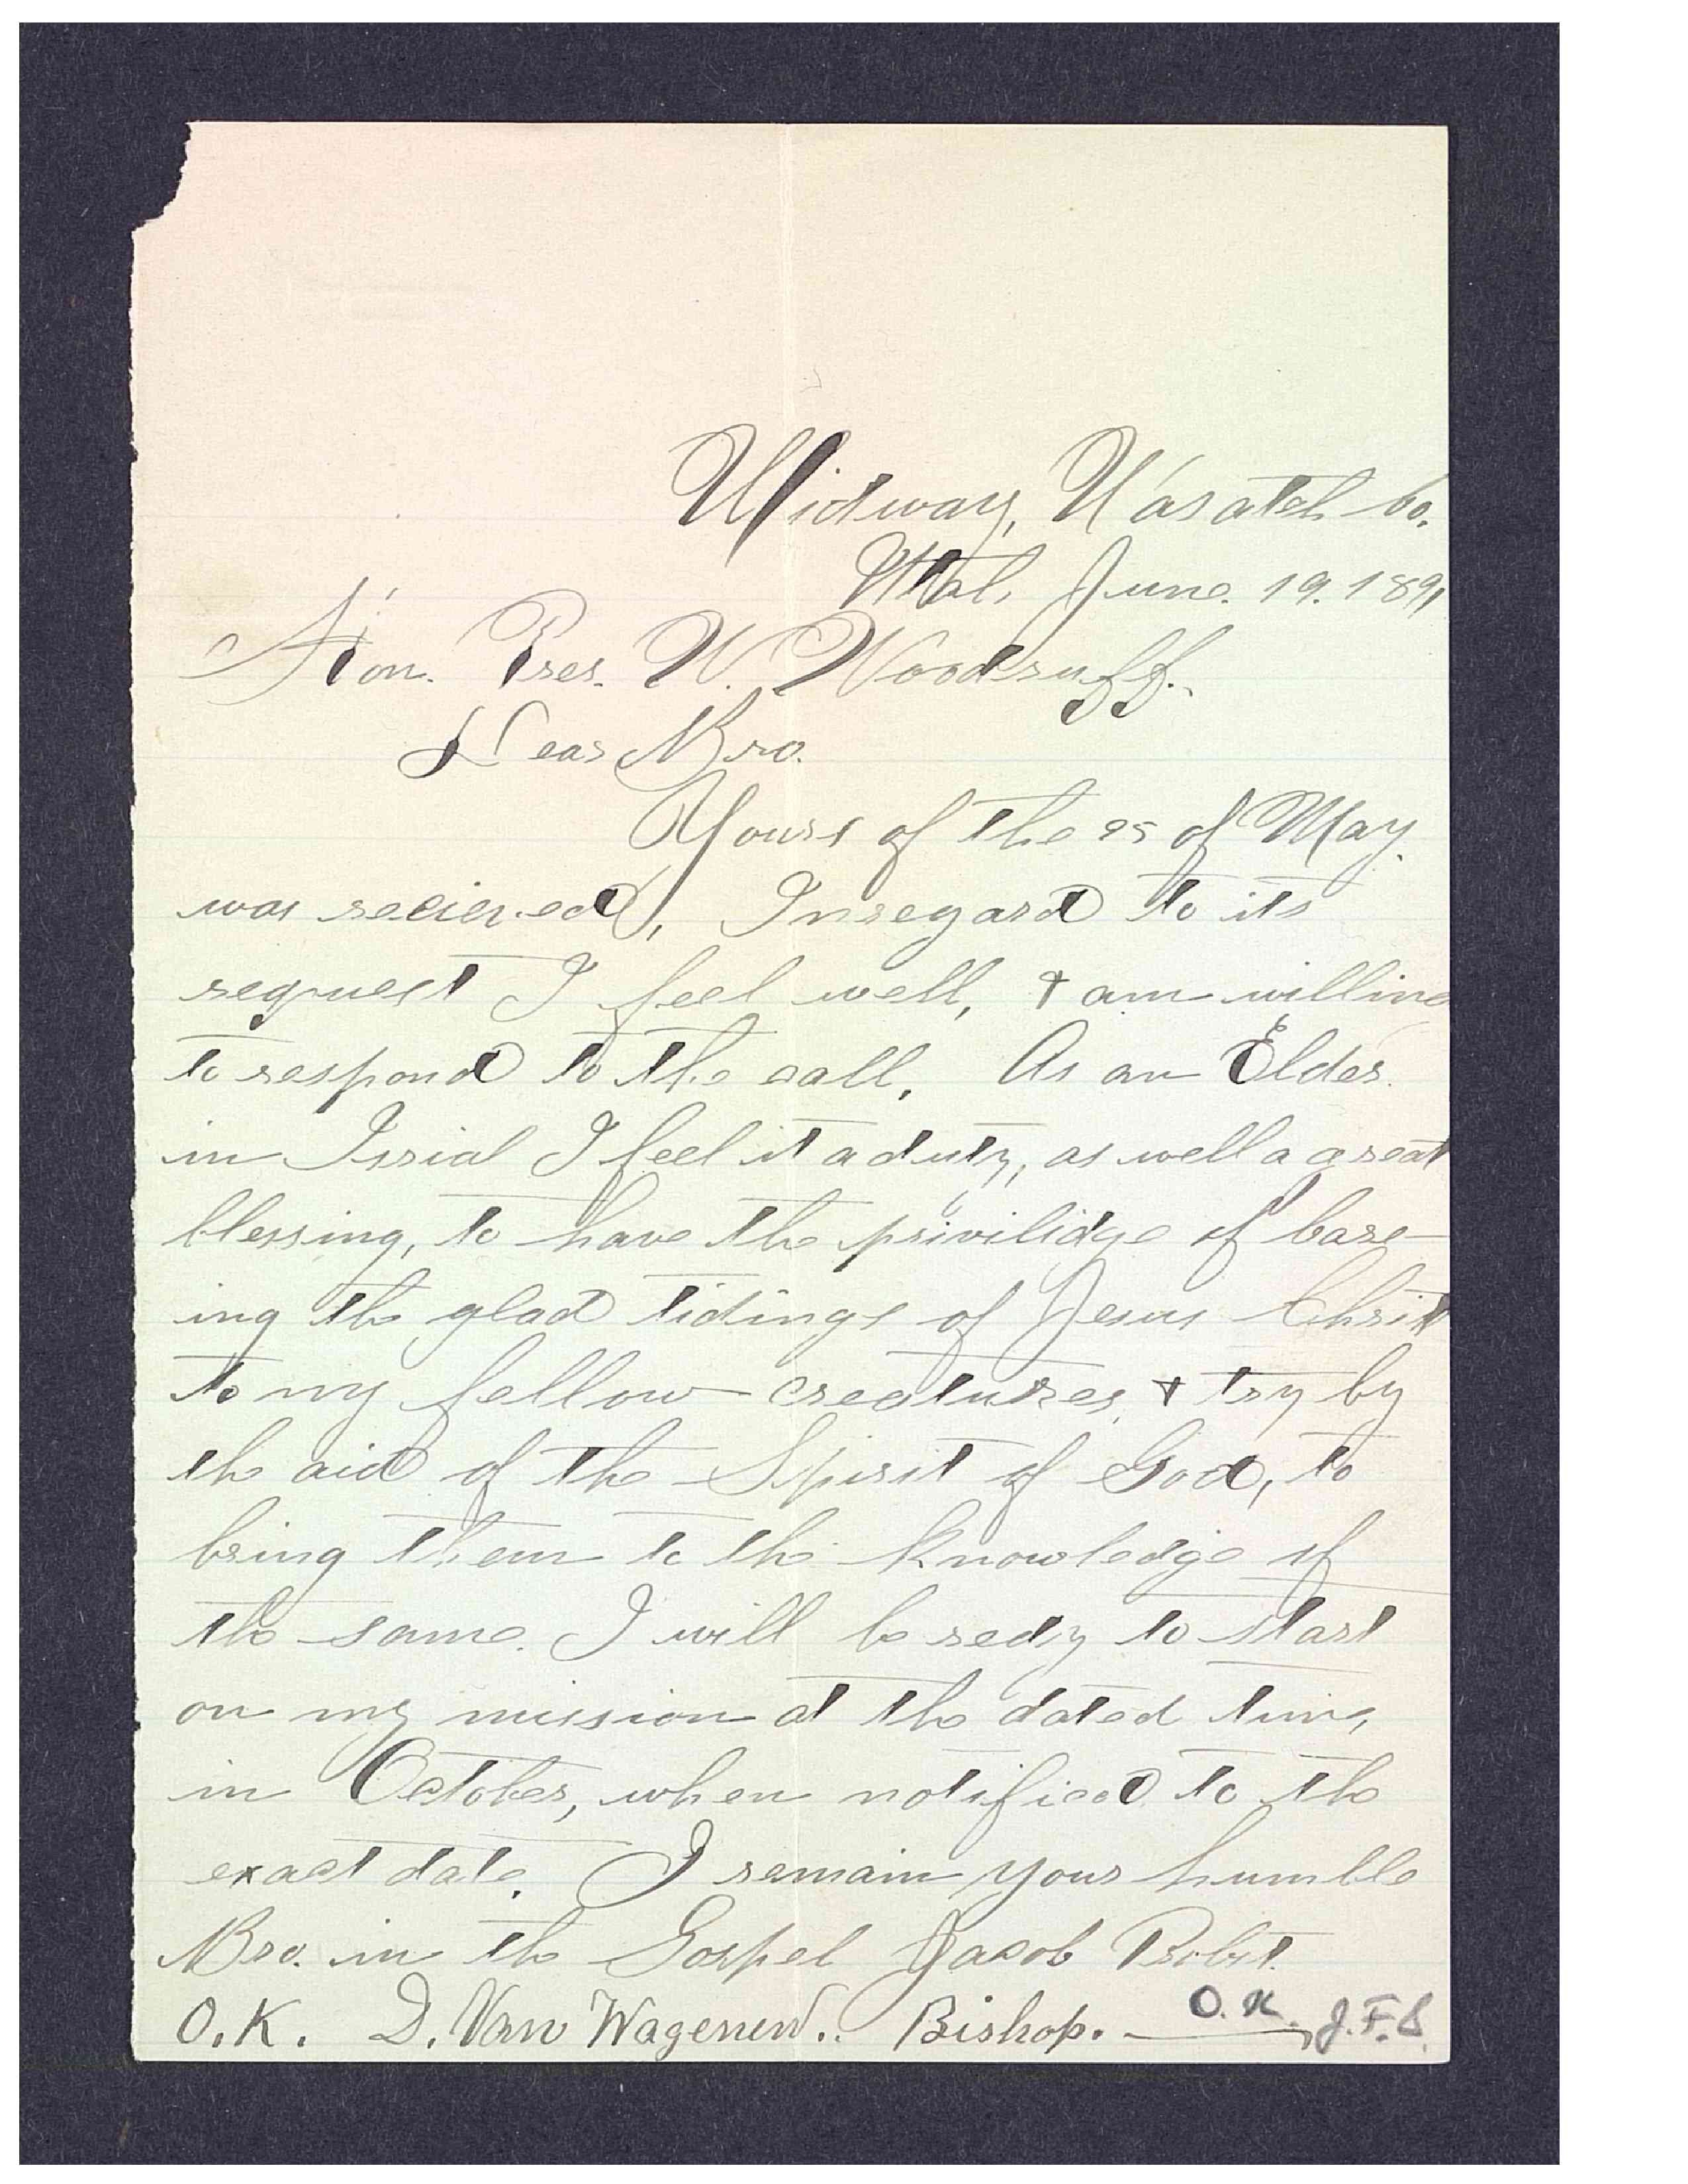 Midway, Wasatch Co.
Utah, June. 19. 1891
Hon. Pres. W. Woodruff.
Dear Bro.
Yours of the 25 of May
was recieved, Inregard to its
request I feel well, & am willing
to respond to the call. As an Elder
in Isrial I feel it a duty, as well a great
blessing, to have the privilidge of bare-
ing the glad tidings of Jesus Christ
to my fellow creatures, & try by
the aid of the Spirit of God, to
bring them to the knowledge of
the same. I will be redy to start
on my mission at the dated time,
in October, when notified to the
exact date. I remain your humble
Bro. in the Gospel Jacob Probst.
O.K. D. Van Wagenen. Bishop. O.K. J.F.S.